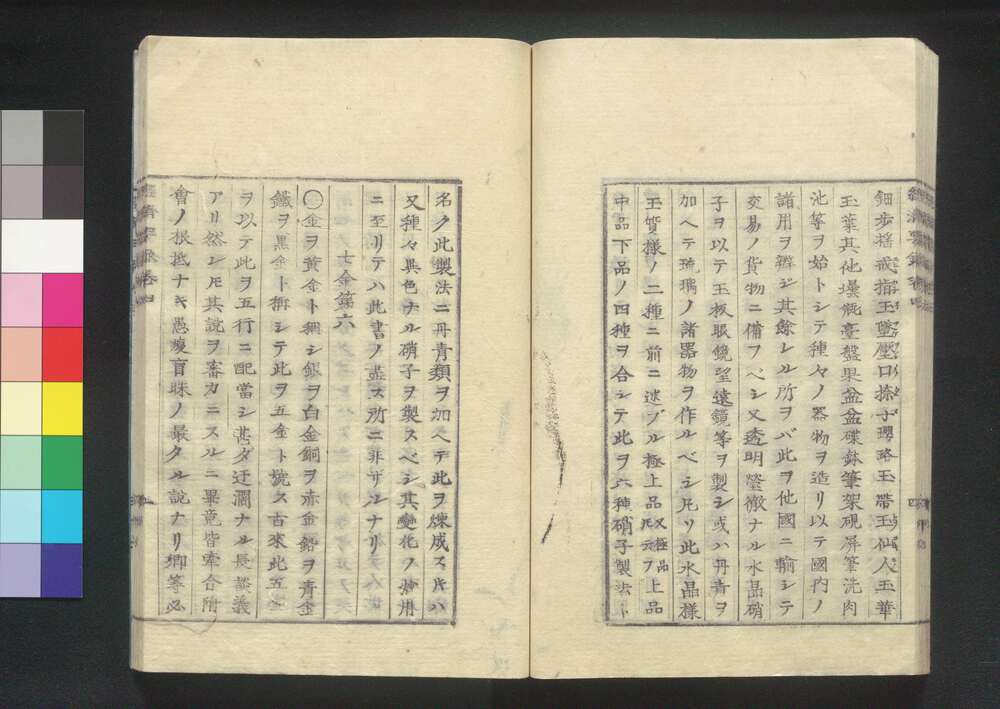 鈿步搖戒指玉墜壓口捺子瓔珞玉帯玉仙人玉華
玉葉其他壜甁臺盤果盆盆碟鉢筆架硯屏筆洗肉
池等ヲ始トシテ種々ノ器物ヲ造リ以テ國内ノ
諸用ヲ辨ジ其餘レル所ヲバ此ヲ他國ニ輸シテ
交易ノ貨物ニ備フベシ又透明瑩徹ナル水晶硝
子ヲ以テ玉板眼鏡望遠鏡等ヲ製シ或ハ丹青ヲ
加ヘテ琉璃ノ諸器物ヲ作ルベシ凡ソ此水晶様
玉質様ノ二種ニ前ニ述ブル極上品又極品尤云フ上品
中品下品ノ四種ヲ合シテ此ヲ六種硝子製法ト
名ク此製法ニ丹青類ヲ加ヘテ此ヲ煉成スルハ
又種々異色ナル硝子ヲ製スベシ其變化ノ妙用
ニ至リテハ此書ノ盡ス所ニ非ザルナリ
七金第六
〇金ヲ黄金ト稱シ銀ヲ白金銅ヲ赤金鉛ヲ青金
鐵ヲ黒金ト稱シテ此ヲ五金ト號ス古來此五金
ヲ以テ此ヲ五行ニ配當シ甚ダ迂濶ナル長談義
アリ然レ𪜈其説ヲ審カニスルニ畢竟皆牽合附
會ノ根抵ナキ愚癡盲昧ノ最タル説ナリ卿等必